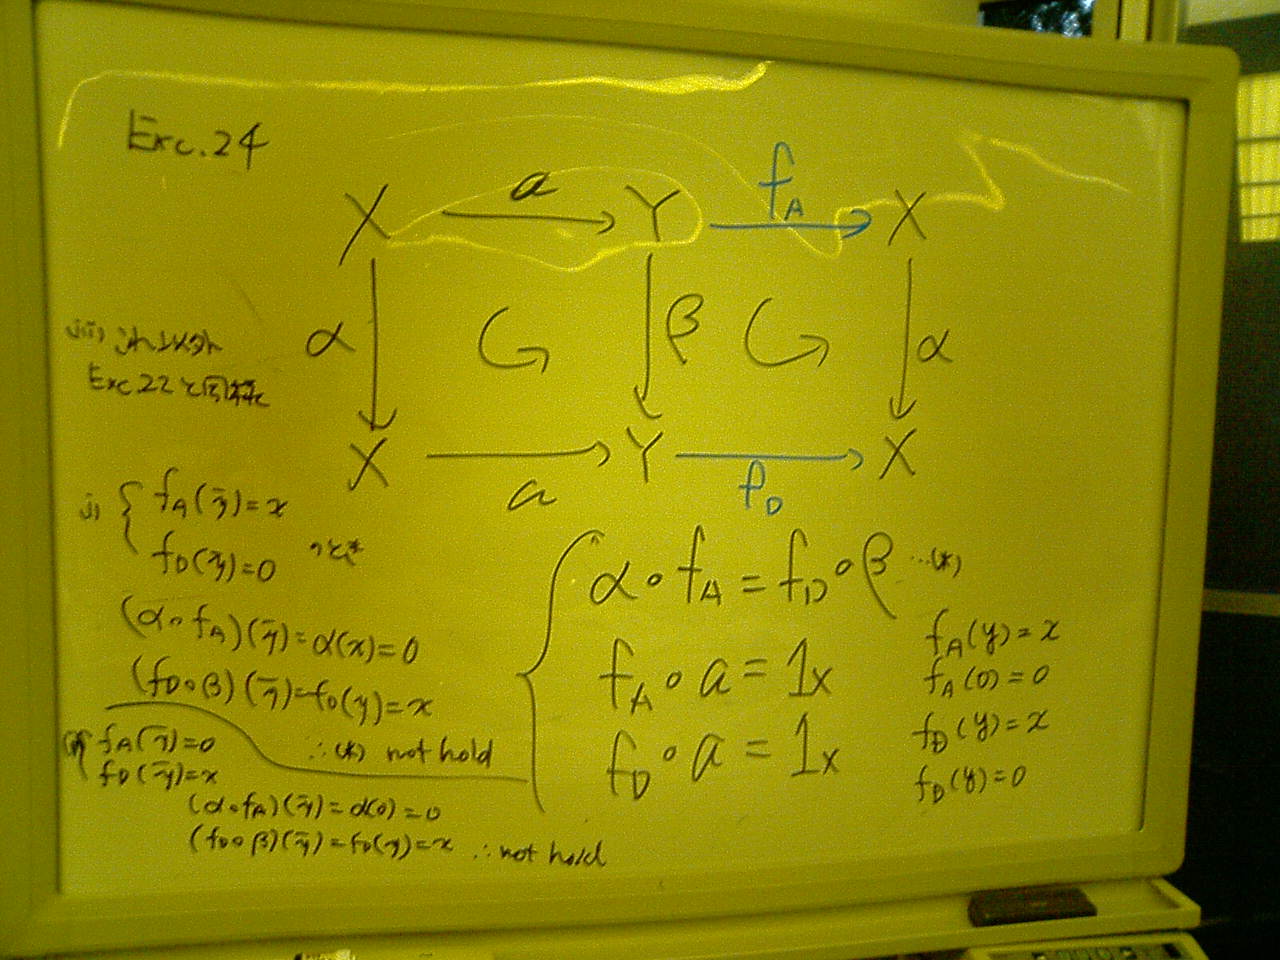 Exc.24
X a Y f_A X
α β α
X a Y f_D X
iii) これ以外
Exc.22と同様に
ii) { f_A(ȳ)=x
f_D(ȳ)=0 のとき
(α∘f_A)(ȳ)=α(x)=0
(f_D∘β)(ȳ)=f_D(y)=x
∴(*) not hold
f_A(ȳ)=0
f_D(ȳ)=x
(α∘f_A)(ȳ)=α(0)=0
(f_D∘β)(ȳ)=f_D(y)=x ∴not hold
{ α∘f_A = f_D∘β …(*)
f_A∘a = 1x
f_D∘a = 1x
f_A(y)=x
f_A(0)=0
f_D(y)=x
f_D(y)=0